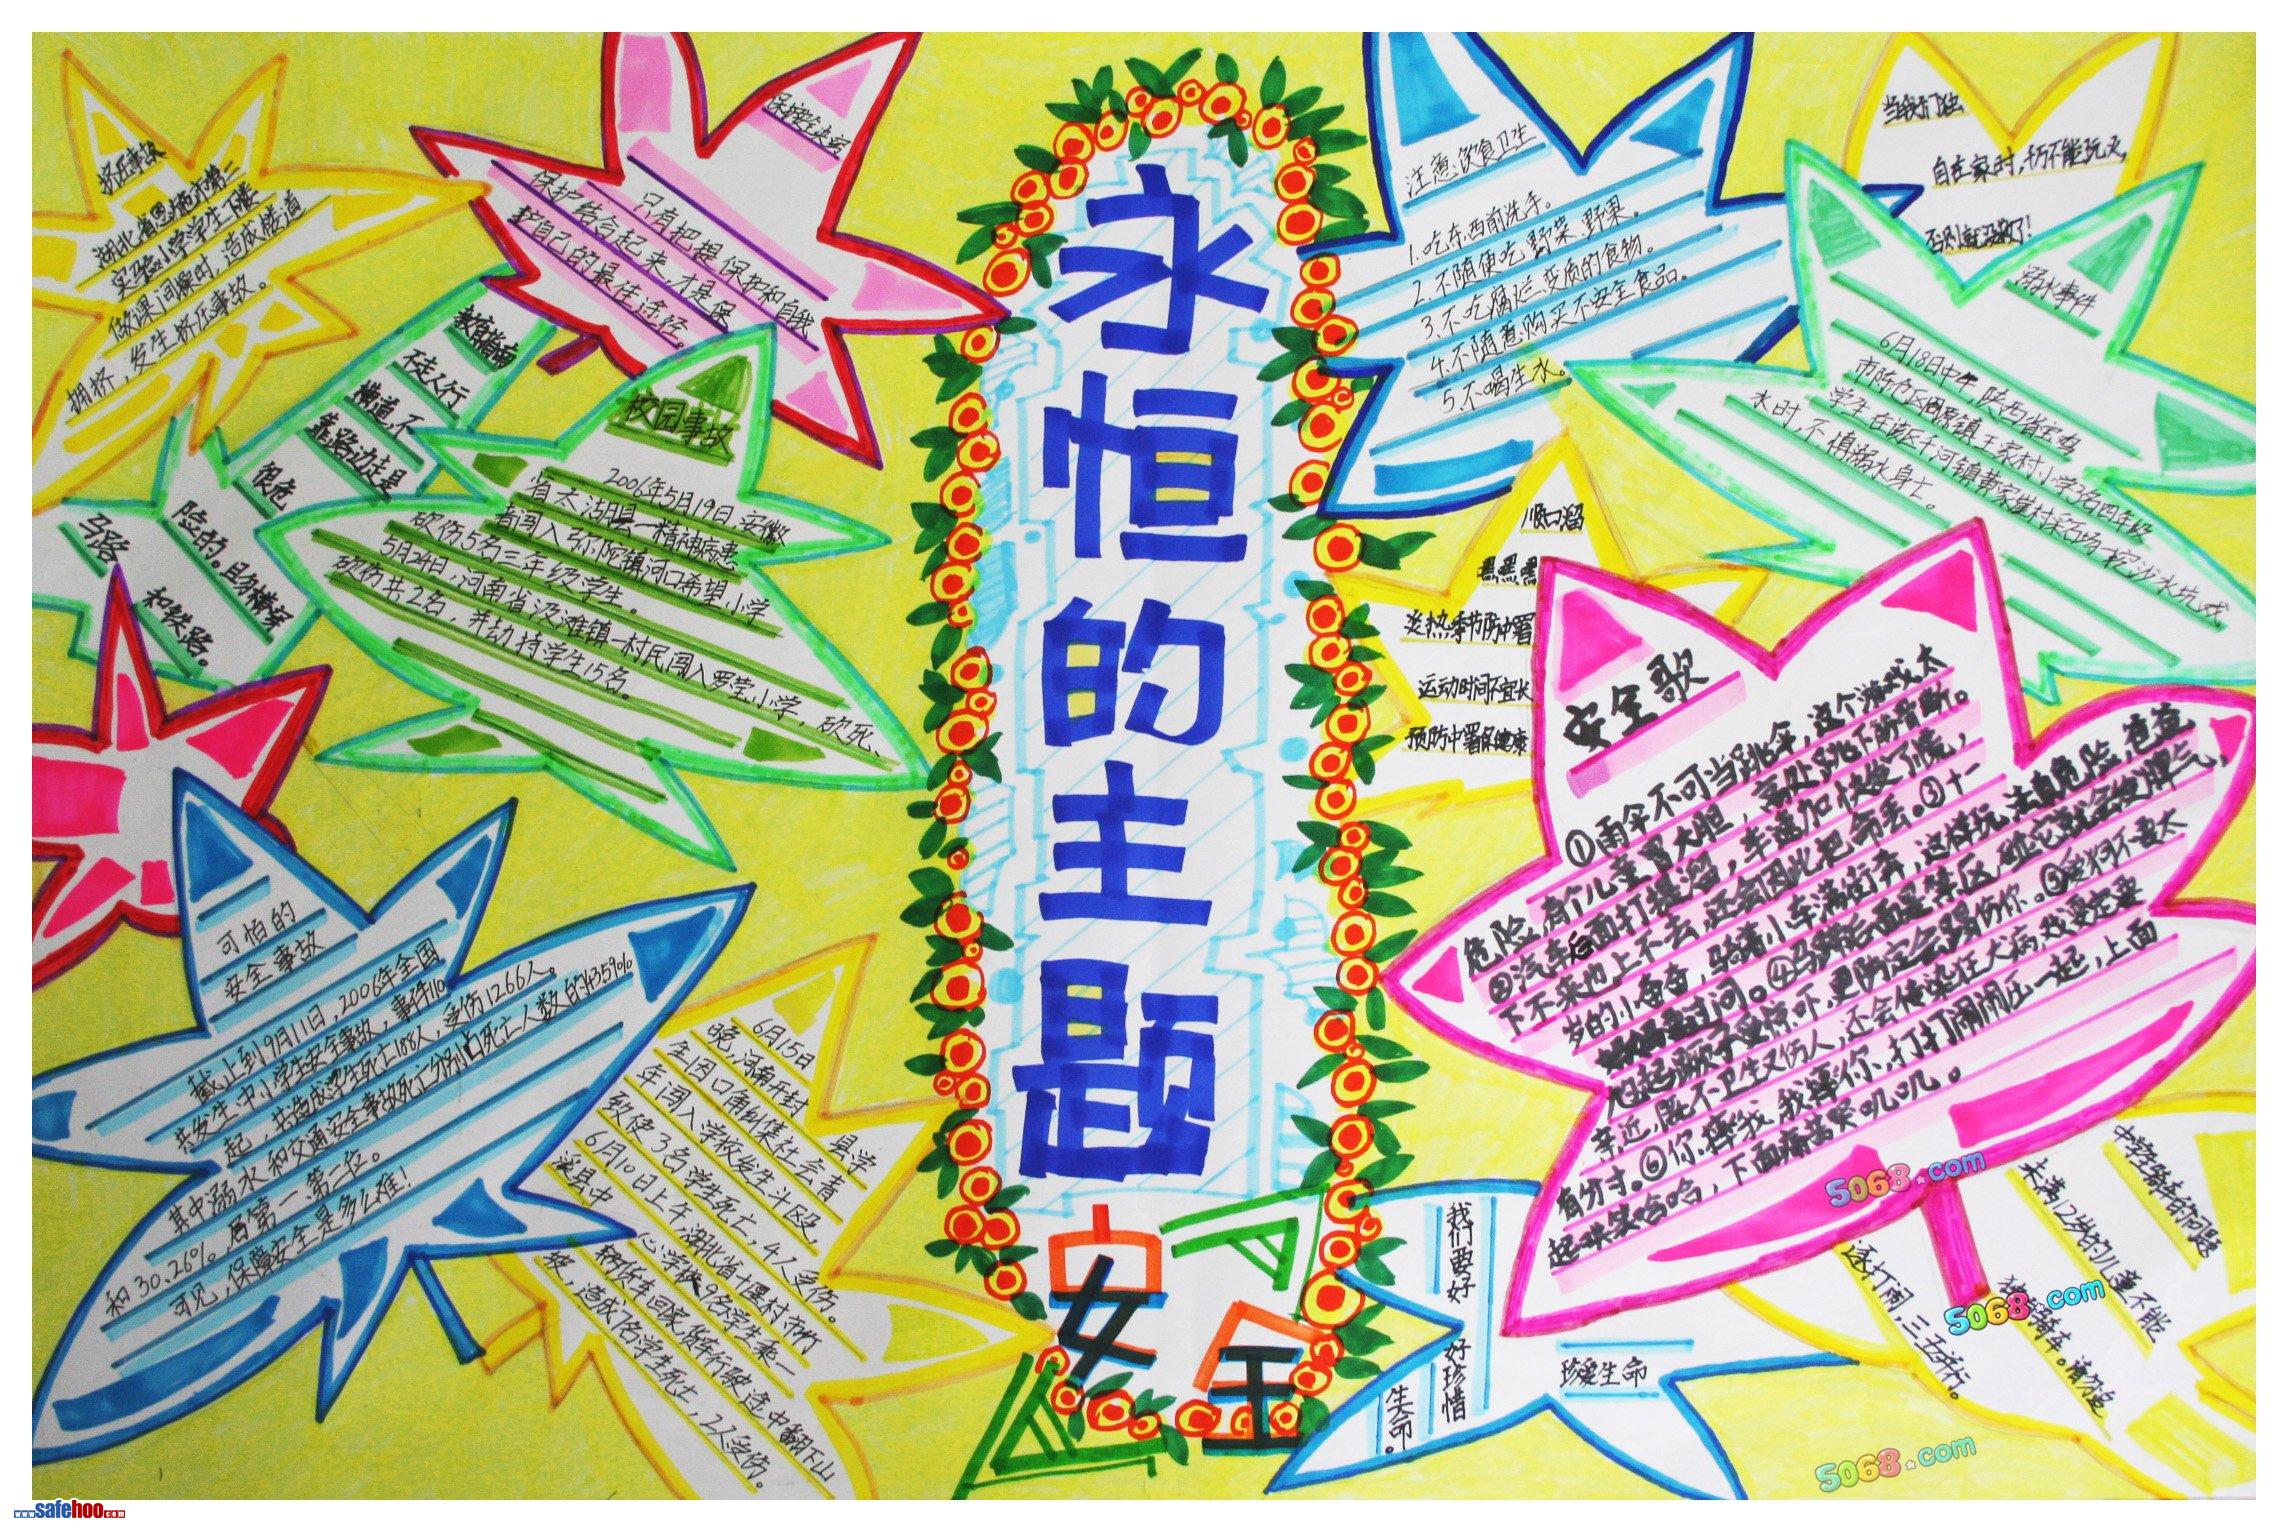 永恒的主题
安全
挤压事故
湖北省恩施市第三
实验小学学生下楼
做课间操时，造成楼道
拥挤，发生挤压事故。
只有把提保护和自我
保护结合起来，才是保
护自己的最佳途径。
教育指南
不走人行
横道，不
靠路边走是
很危
险的。且勿横穿
马路
和铁路。
校园事故
2006年5月19日，安徽
省太湖县一精神病患
者闯入弥陀镇河口希望小学
砍伤5名三年级学生。
5月24日，河南省汲滩镇一村民闯入罗莹小学，砍死、
砍伤共2名，并劫持学生15名。
可怕的
安全事故
截止到9月11日，2006年全国
共发生中小学生安全事故，事件110
起，共造成学生死亡188人，受伤1266人。
其中溺水和交通安全事故死亡分别占死亡人数的43.59%
和30.26%，居第一、第二位。
可见，保障安全是多么难！
6月15日
晚，河南开封 县学
生因口角纠集社会青
年闯入学校发生斗殴，
致使3名学生死亡，4人受伤。
6月10日上午，湖北省十堰村市竹
溪县中 心学校9名学生乘一
辆货车回家，货车行驶途中翻下山
坡，造成7名学生死亡，2人受伤。
注意饮食卫生
1.吃东西前洗手。
2.不随便吃野菜、野果。
3.不吃腐烂、变质的食物。
4.不随意购买不安全食品。
5.不喝生水。
当我们独
自在家时，千万不能玩火，
否则就没救了！
溺水事件
6月18日中午，陕西省宝鸡
市陈仓区周原镇王家村小学6名四年级
学生在该区千河镇黄家崖村采石场一挖沙水坑戏
水时，不慎溺水身亡。
顺口溜
嘿嘿嘿
炎热季节防中暑
运动时间不宜长
预防中暑保健康
安全歌
①雨伞不可当跳伞，这个游戏太
危险，有个儿童冒大胆，高处跳下筋骨断。
②汽车后面打提溜，车速加快发了慌，
下不来也上不去，还会因此把命丢。③十一
岁的小奋奋，骑着小车满街奔，这样玩法真危险，爸爸
妈妈要过问。④马蹄后面是禁区，碰它就会使脾气，
尥起蹶子里惊吓，更防定会踢伤你。⑤爱狗不要太
亲近，既不卫生又伤人，还会传染狂犬病，戏耍定要
有分寸。⑥你摔我，我摔你，打打闹闹压一起，上面
起哄笑哈哈，下面痛苦哭叽叽。
我们要好
好珍惜
生命。
珍爱生命
中学生骑车的问题
未满12岁的儿童不能
独自骑车。请勿追
逐打闹，三五并行。
5068.com
5068.com
5068.com
www.safehoo.com